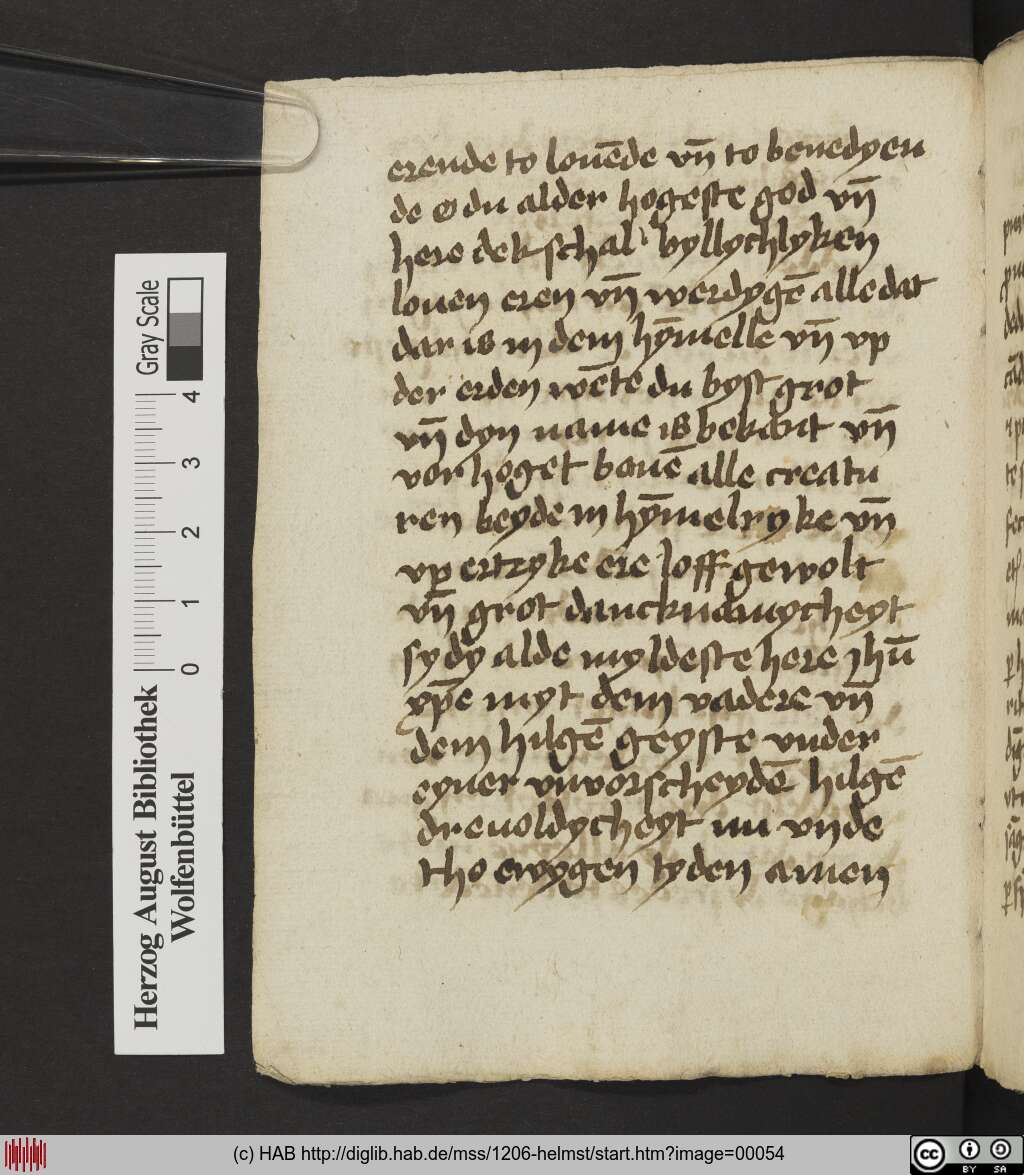 erende to louēde vn̄ to benedyen
de o du alder hogeste god vn̄
here dek schal byllychlyken
louen eren vn̄ werdygē alle dat
dar is in dem hȳmelle vn̄ vp
der erden wēte du byst grot
vn̄ dyn name is bekant vn̄
vorhoget bouē alle creatu
ren beyde in hȳmelryke vn̄
vp ertryke ere loff gewolt
vn̄ grot dancknamycheyt
sy dy alde myldeste here jhū
xp̄e myt dem vadere vn̄
dem hilgē geyste vnder
eyner vnvorscheydē hilgē
dreuoldycheyt nu vnde
tho ewygen tyden amen
Gray Scale
0 1 2 3 4
Herzog August Bibliothek
Wolfenbüttel
(c) HAB http://diglib.hab.de/mss/1206-helmst/start.htm?image=00054
cc BY SA